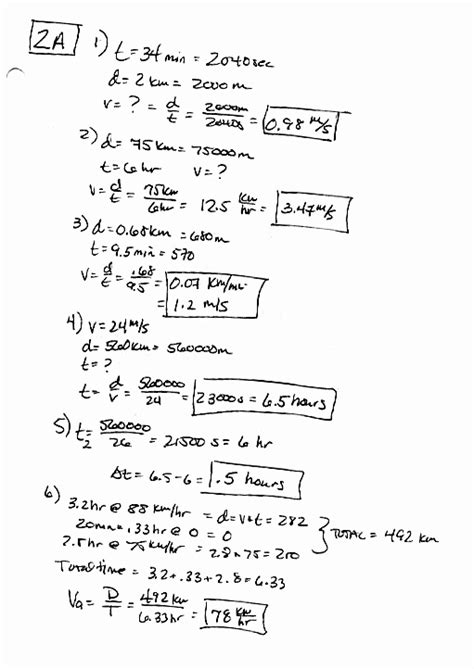 2A
1) t = 34 min = 2040 sec
d = 2 km = 2000 m
v = ? = d/t = 2000m/2040s = 0.98 m/s
2) d = 75 km = 75000m
t = 6 hr v = ?
v = d/t = 75km/6hr = 12.5 km/hr = 3.47 m/s
3) d = 0.68 km = 680m
t = 9.5 min = 570
v = d/t = .68/9.5 = 0.07 km/min
= 1.2 m/s
4) v = 24 m/s
d = 560 km = 560000m
t = ?
t = d/v = 560000/24 = 23000 s = 6.5 hours
5) t2 = 560000/26 = 21500 s = 6 hr
Δt = 6.5 - 6 = .5 hours
6) 3.2 hr @ 88 km/hr = d = v•t = 282
20 min = .33 hr @ 0 = 0
2.8 hr @ 75 km/hr = 2.8 × 75 = 210
TOTAL = 492 km
Total time = 3.2 + .33 + 2.8 = 6.33
Va = D/T = 492 km/6.33 hr = 78 km/hr